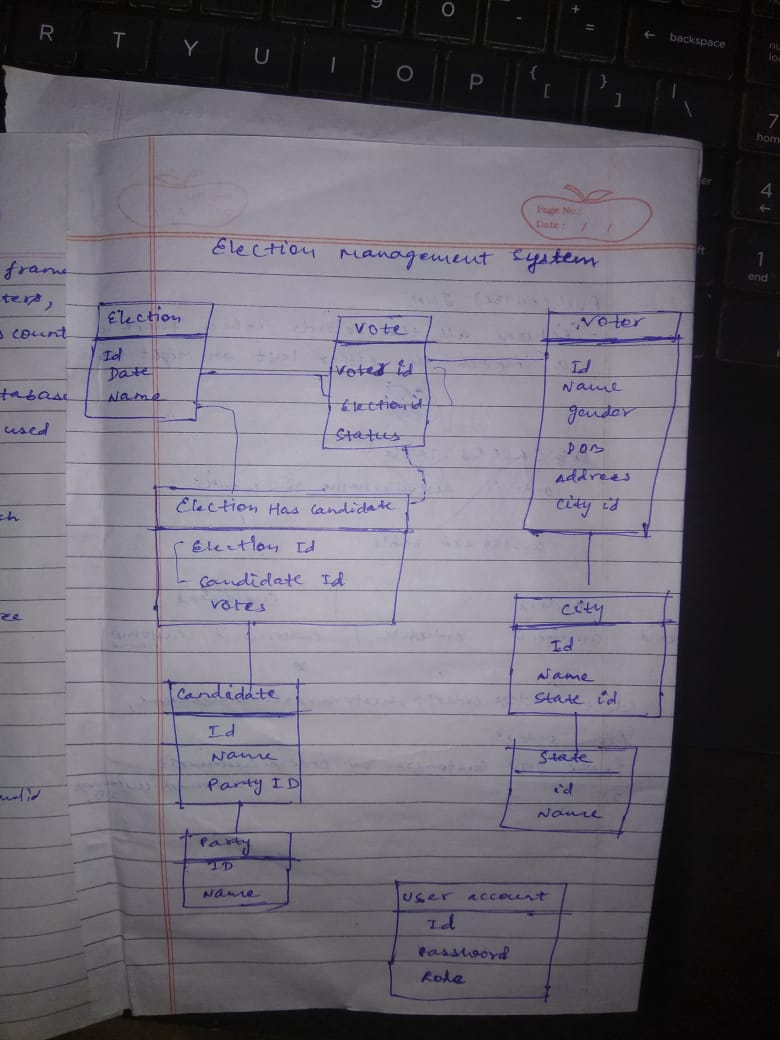 R T Y U I O P { [ } ] | \
9 0 - + = ← backspace
7
home
4
←
1
end
Page No.:
Date: / /
Election Management System
Election
Id
Date
Name
Vote
Voter id
Election id
Status
Voter
Id
Name
gender
DOB
Address
City id
Election Has Candidate
Election Id
Candidate Id
Votes
City
Id
Name
State id
Candidate
Id
Name
Party ID
State
id
Name
Party
ID
Name
User account
Id
Password
Role
frame
ters,
count
tabase
used